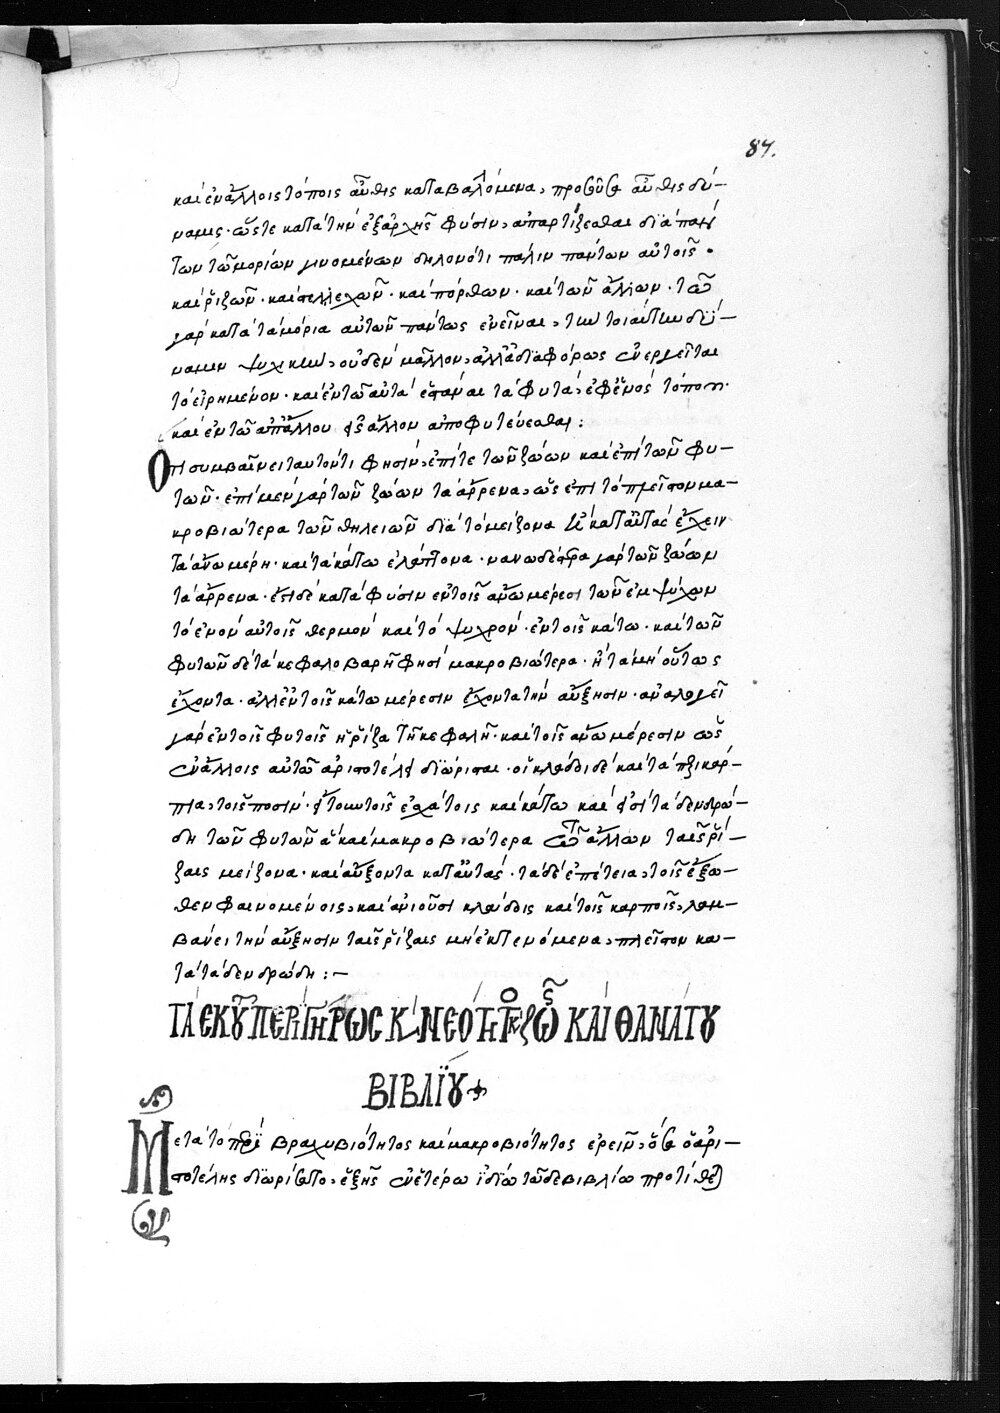 87.
καὶ ἐν ἄλλοις τόποις αὖθις καταβαλλόμενα, αὖθις δύ-
ναμις· ὥστε κατὰ τὴν ἐξαρχῆς φύσιν, ἀπαρτίζεσθαι διὰ παντ
των τῶν μορίων γινομένων δηλονότι πάλιν πάντων αὐτοῖς·
καὶ ῥιζῶν· καὶ στελλεχῶν· καὶ πόρθων· καὶ τῶν ἄλλων·
γὰρ κατὰ τὰ μόρια αὐτῶν πάντως ἐνεῖναι, τὴν τοιαύτην δύ-
ναμιν ψυχικὴν, οὐδὲν μᾶλλον, ἀλλὰ διαφόρως ἐνεργεῖται
τὸ εἰρημένον· καὶ ἐν τῶ αὐτὰ ἑστάναι τὰ φυτὰ, ἐφ' ἑνὸς τόπου·
καὶ ἐν τῶ ἀπ' ἄλλου εἰς ἄλλον ἀποφυτεύεσθαι:
Ὅτι συμβαίνει ταυτόν τί φησιν, ἐπί τε τῶν ζώων καὶ ἐπὶ τῶν φυ-
τῶν· ἐπὶ μὲν γὰρ τῶν ζώων τὰ ἄρρενα, ὡς ἐπὶ τὸ πλεῖστον μα-
κροβιώτερα τῶν θηλειῶν διὰ τὸ μείζονα καὶ κατ' αὐτὰς ἔχειν
τὰ ἄνω μέρη· καὶ τὰ κάτω ἐλάττονα· νανωδέστερα γὰρ τῶν ζώων
τὰ ἄρρενα· ἔστι δὲ κατὰ φύσιν ἐν τοῖς ἄνω μέρεσι τῶν ἐμψύχων
τὸ ἐνὸν αὐτοῖς θερμὸν καὶ τὸ ψυχρὸν· ἐν τοῖς κάτω· καὶ τῶν
φυτῶν δὲ τὰ κεφαλοβαρῆ φησὶ μακροβιώτερα· ἢ τὰ μὴ οὕτως
ἔχοντα· ἀλλ' ἐν τοῖς κάτω μέρεσιν ἔχοντα τὴν αὔξησιν· ἀναλογεῖ
γὰρ ἐν τοῖς φυτοῖς ἡ ῥίζα τῆ κεφαλῆ· καὶ τοῖς ἄνω μέρεσιν ὡς
ἐν ἄλλοις αὐτῶ ἀριστοτέλει διώρισται· οἱ κλάδοι δὲ καὶ τὰ περικάρ-
πια, τοῖς ποσὶν· ἐσχάτοις καὶ κάτω καὶ εἰσὶ τὰ δενδρώ-
δη τῶν φυτῶν ἃ καὶ μακροβιώτερα τῶν ἄλλων ταῖς ῥί-
ζαις μείζονα· καὶ αὔξοντα κατ' αὐτάς· τὰ δὲ ἐπέτεια, τοῖς ἔξω-
θεν φαινομένοις, καὶ ἀνιοῦσι κλάδοις καὶ τοῖς καρποῖς, λαμ-
βάνει τὴν αὔξησιν ταῖς ῥίζαις μὴ ἐκτεινόμενα, πλεῖστον κα-
τὰ τὰ δενδρώδη:-
ΤᾺ ἘΚ ΤΟΥ͂ ΠΕΡῚ ΓΉΡΩΣ Κ ΝΕΌΤΗΤΟΣ Κ ΖΩΗ͂Σ ΚΑῚ ΘΑΝΆΤΟΥ
ΒΙΒΛΊΟΥ
Μετὰ τὸ περὶ βραχυβιότητος καὶ μακροβιότητος ἐρεῖν, ὁ ἀρι-
στοτέλης διωρίσατο, ἑξῆς ἐν ἑτέρω ἰδίω τῶδε βιβλίω προτίθε